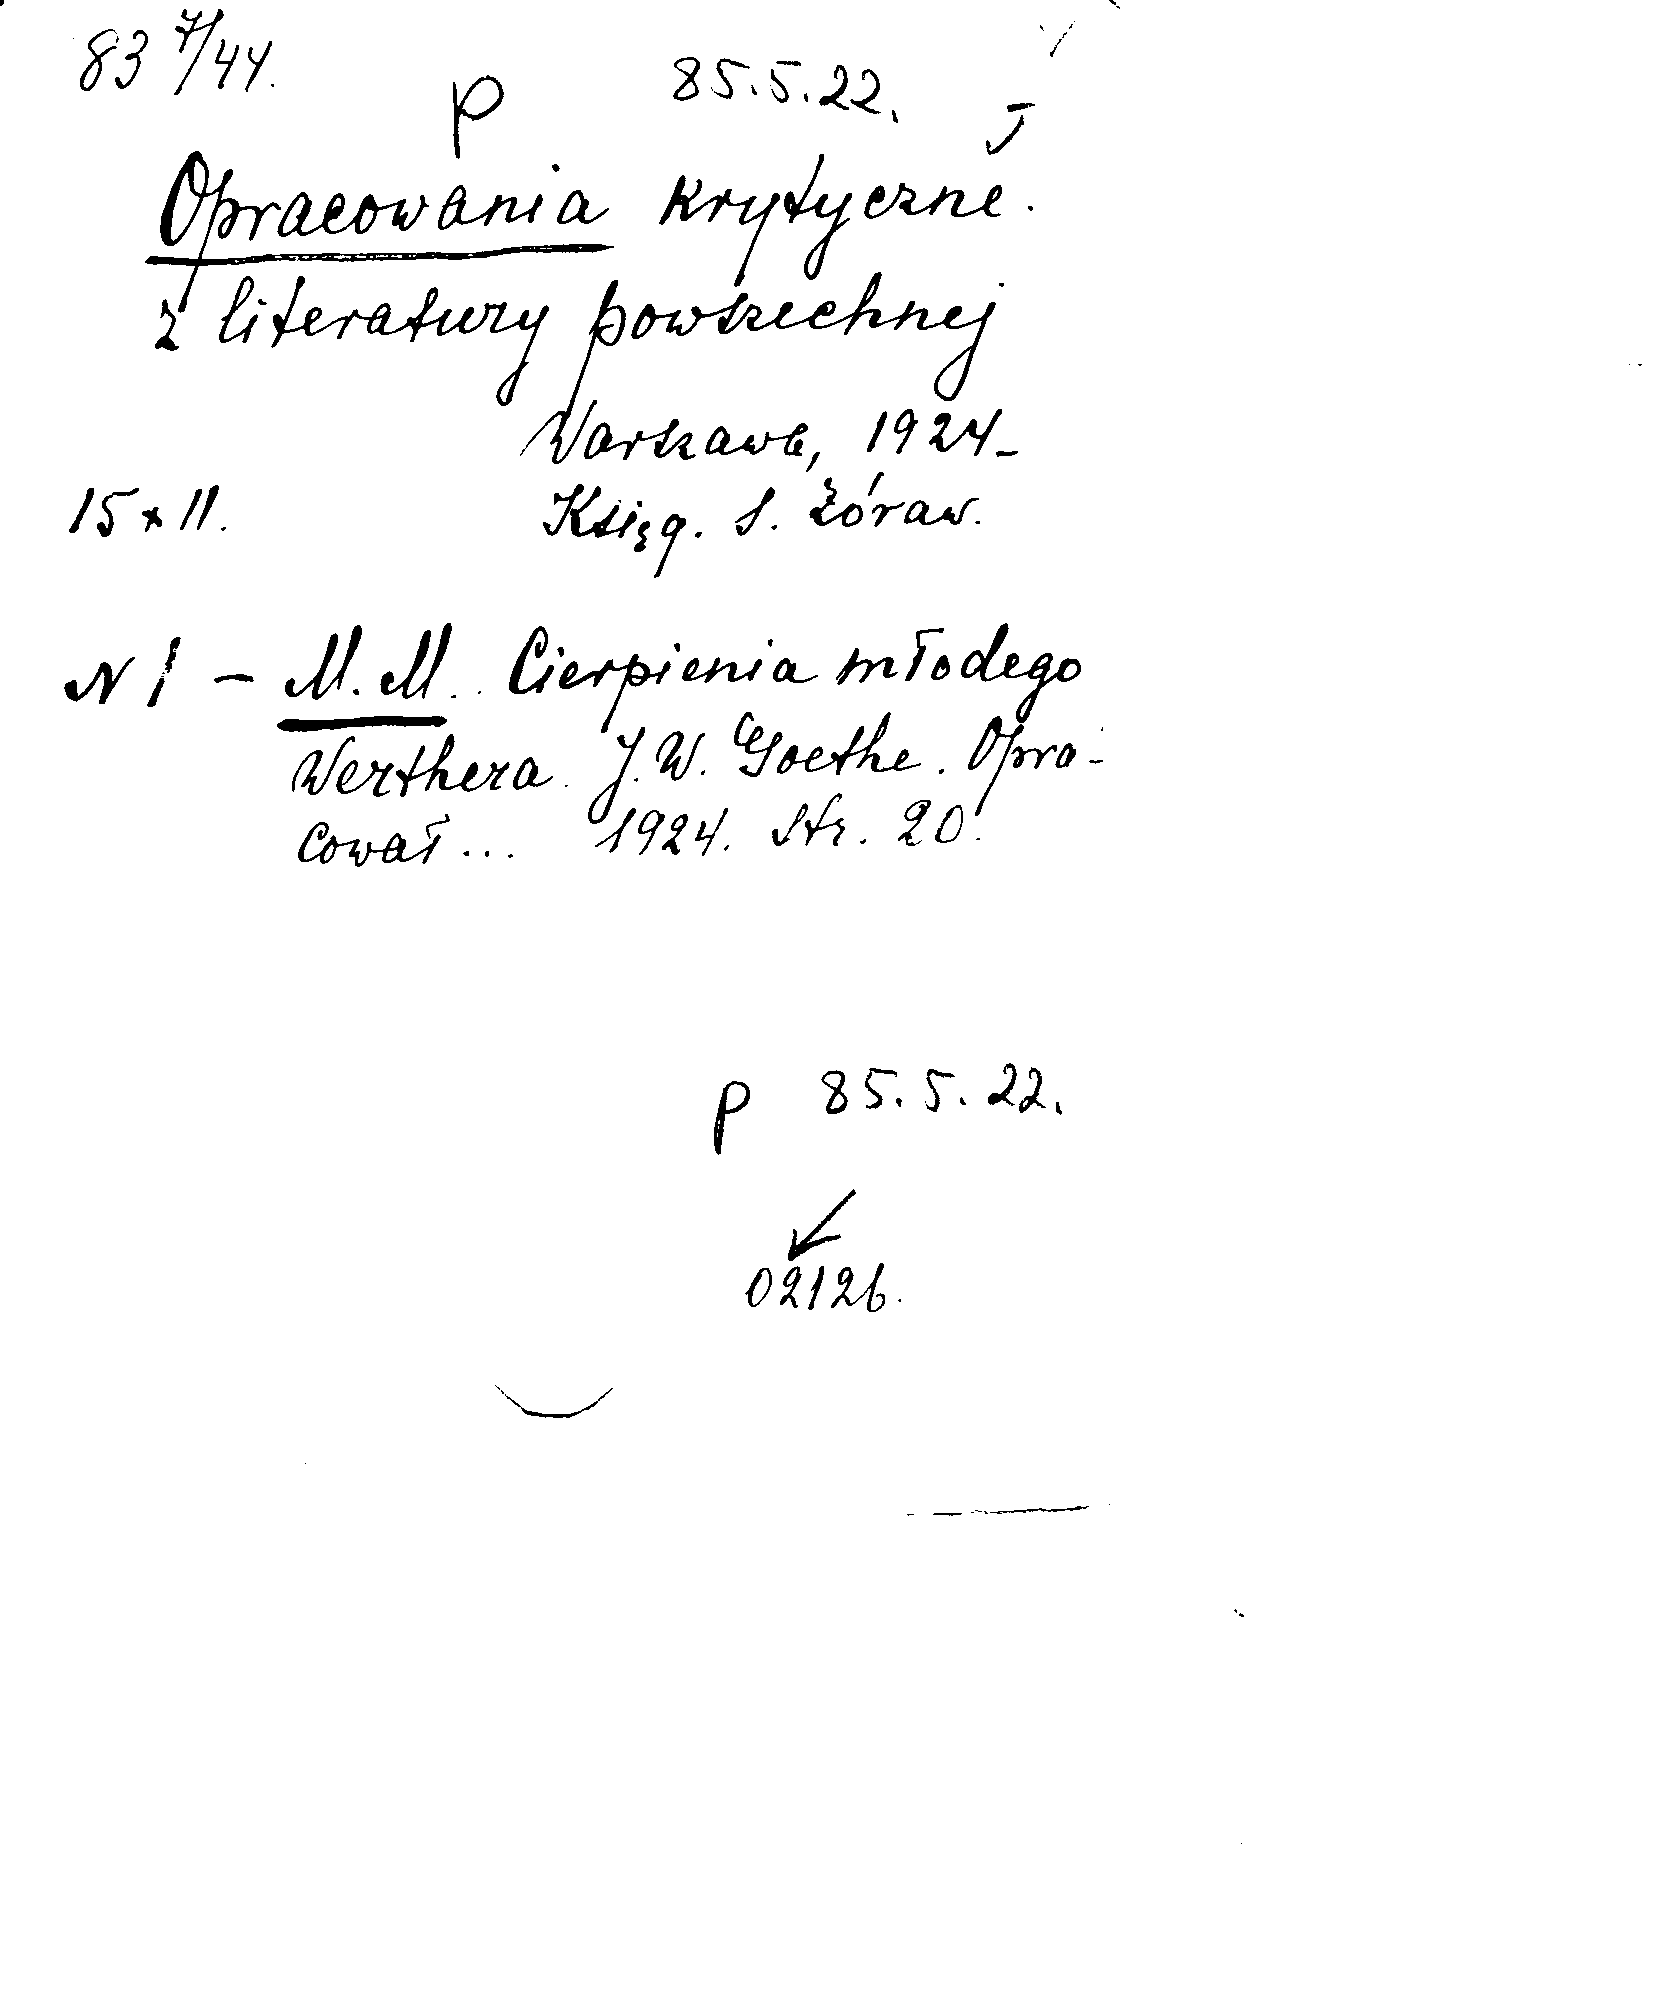 83 7/44.
P 85.5.22.
Opracowania krytyczne.
z literatury powszechnej
Warszawa, 1924-
15 x 11. Księg. S. Żóraw.
N 1 - M. M. Cierpienia młodego
Werthera. J. W. Goethe. Opra-
cował ... 1924. Str. 20.
P 85.5.22.
02126.